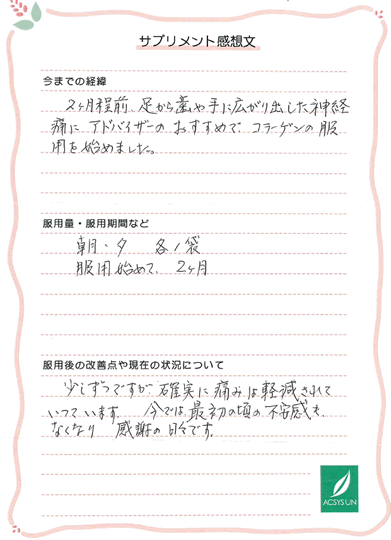 サプリメント感想文
今までの経緯
2ヶ月程前、足から藁や手に広がり出した神経
痛に アドバイザーの おすすめで コラーゲンの服
用を始めました。
服用量・服用期間など
朝・夕 各1袋
服用始めて、2ヶ月
服用後の改善点や現在の状況について
少しずつですが、確実に痛みは軽減されて
いっています。 今では、最初の頃の不安感も、
なくなり 感謝の日々です。
ACSYSUN